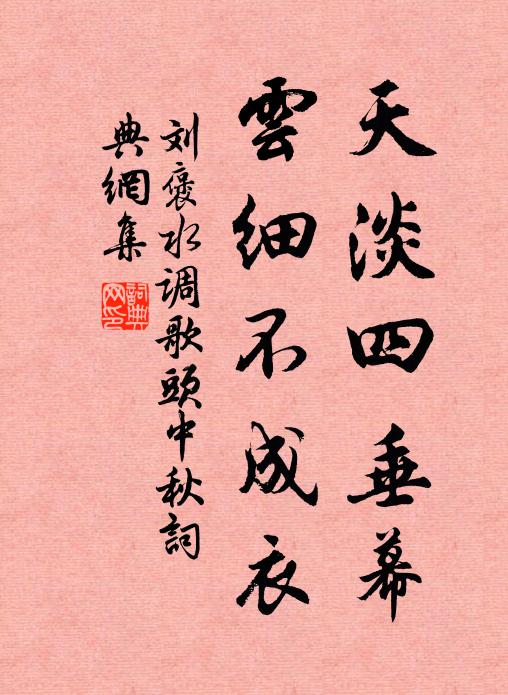 天淡四垂幕
雲细不成衣
刘褒水调歌頭中秋詞
典網集
詞典网印